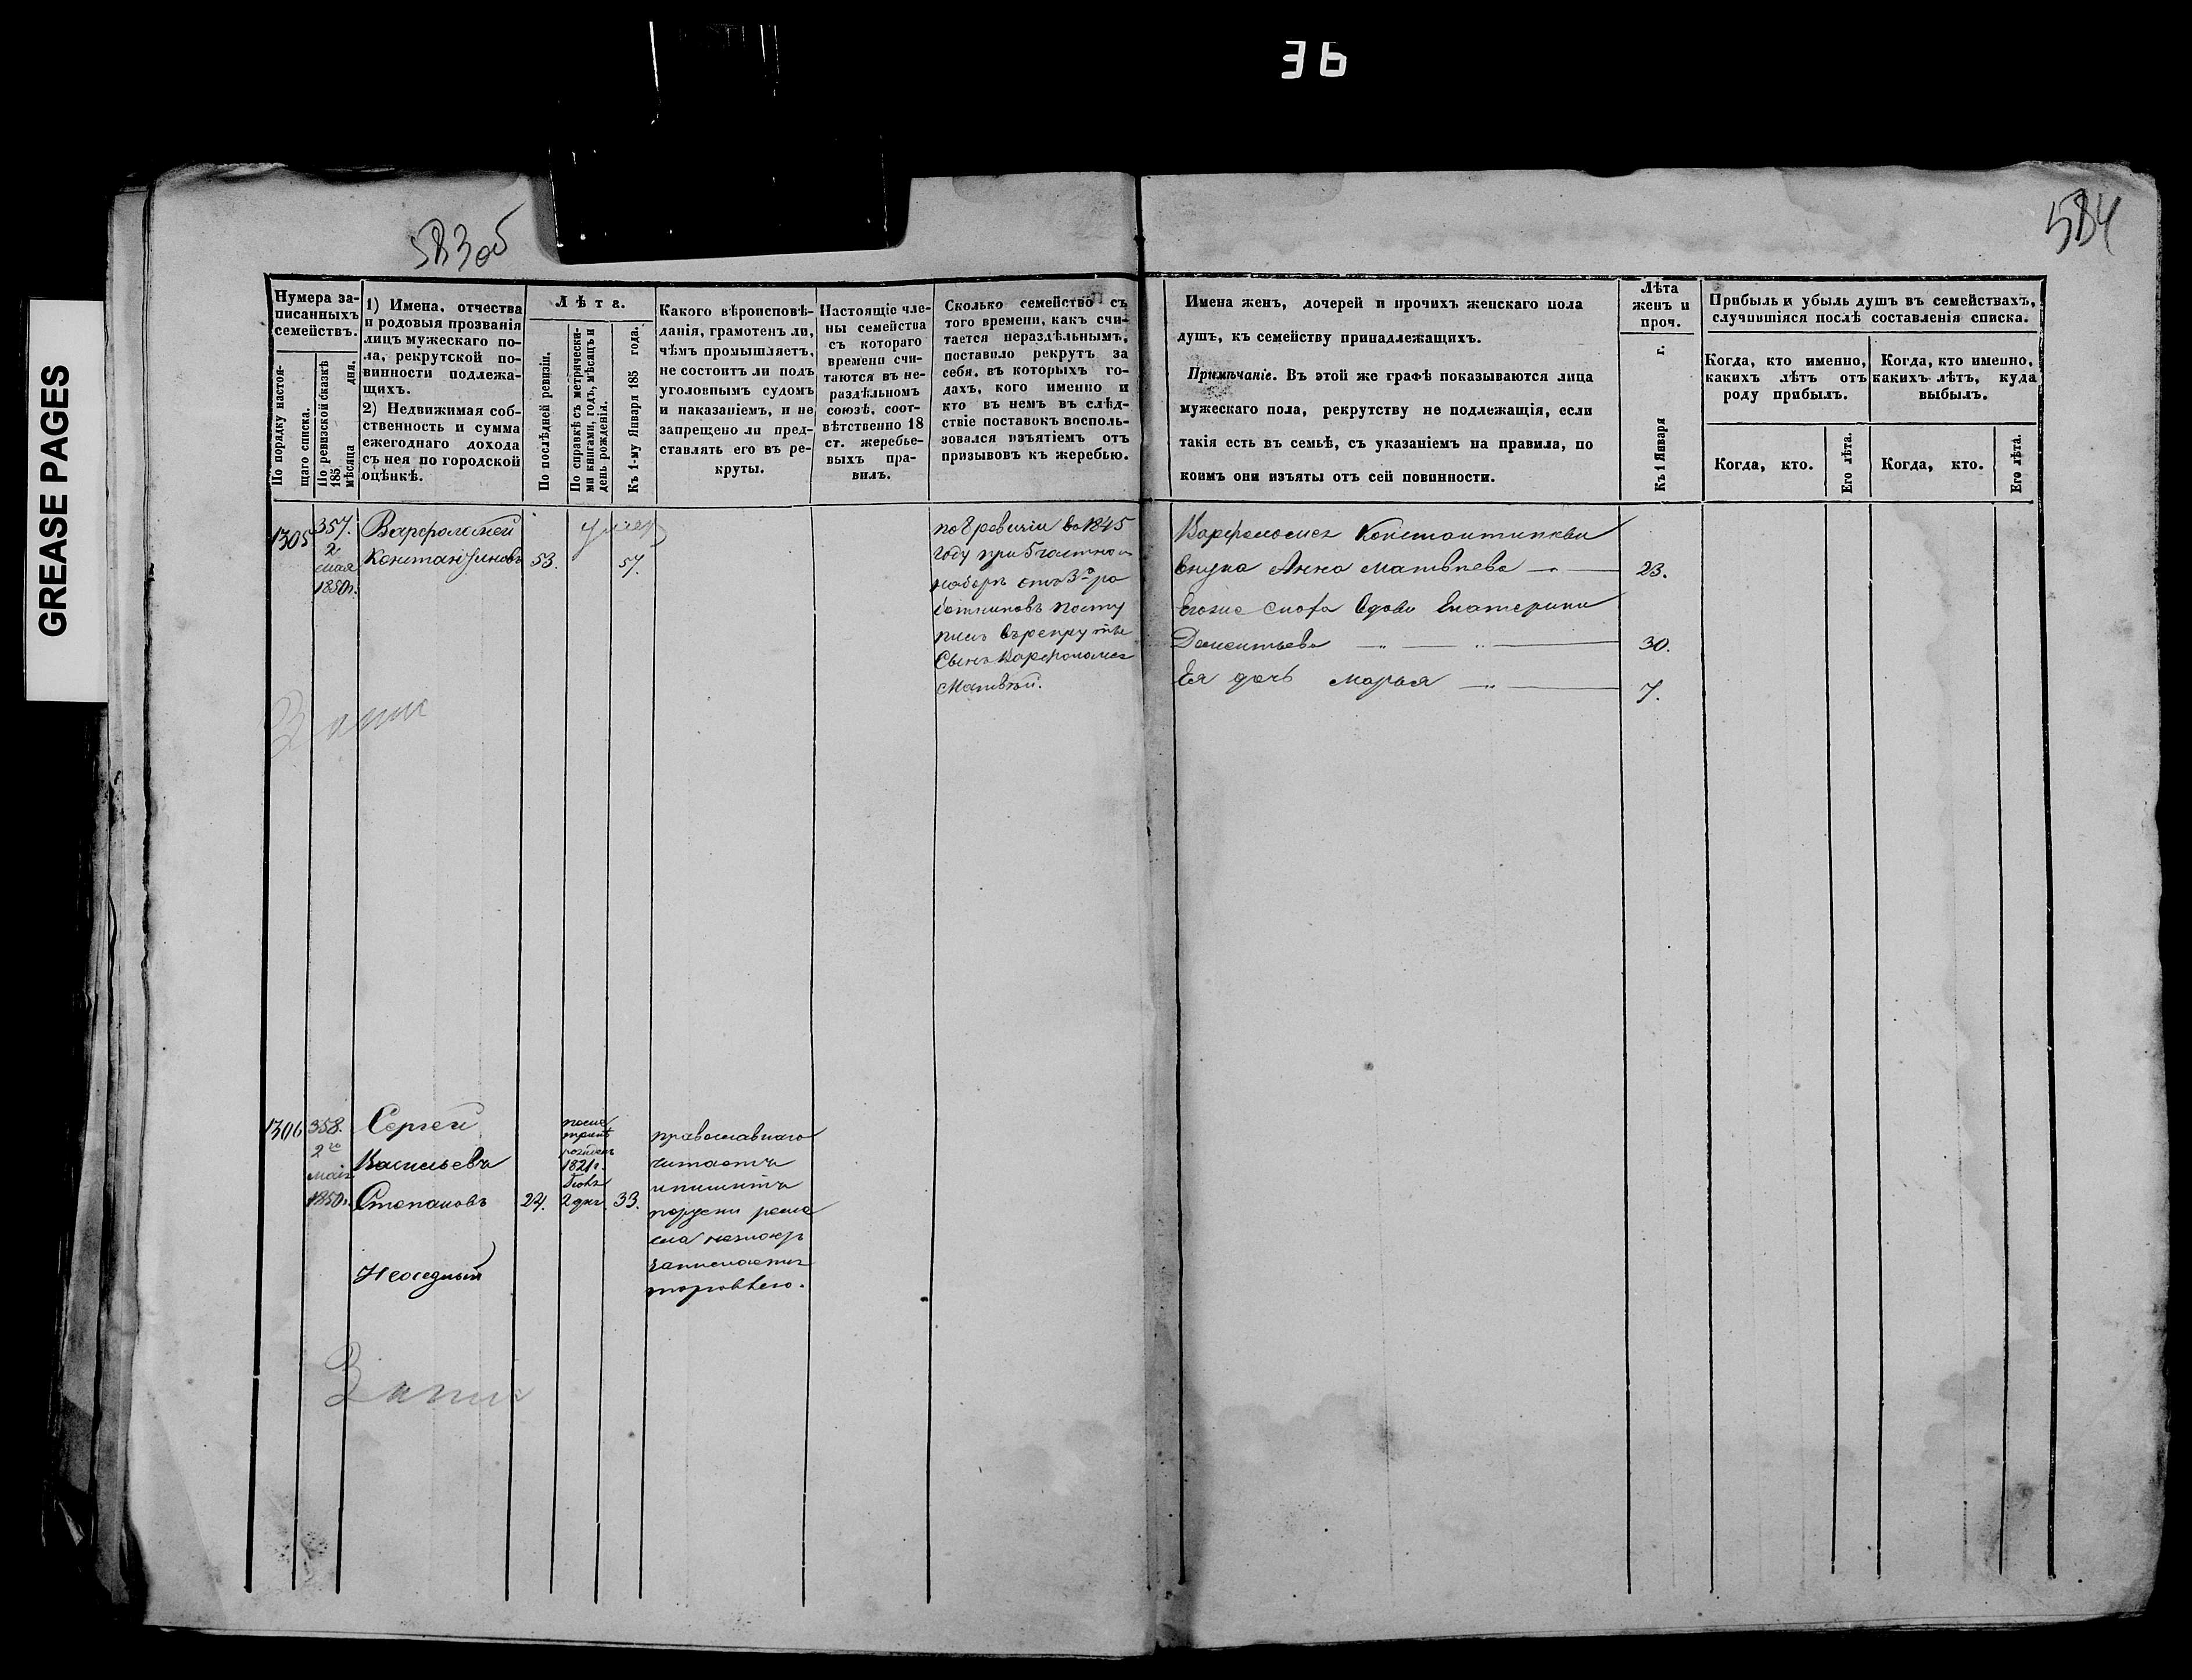 36
GREASE PAGES
583об
584
Нумера за-
писанныхъ
семействъ.
По порядку настоя-
щаго списка.
По ревизской сказкѣ
185
мѣсяца дня.
1) Имена, отчества
и родовыя прозванія
лицъ мужескаго по-
ла, рекрутской по-
винности подлежа-
щихъ.
2) Недвижимая соб-
ственность и сумма
ежегоднаго дохода
съ нея по городской
оцѣнкѣ.
Лѣта.
По послѣдней ревизіи.
По справкѣ съ метрически-
ми книгами, годъ, мѣсяцъ и
день рожденія.
Къ 1-му Января 185 года.
Какого вѣроисповѣ-
данія, грамотенъ ли,
чѣмъ промышляетъ,
не состоитъ ли подъ
уголовнымъ судомъ
и наказаніемъ, и не
запрещено ли пред-
ставлять его въ ре-
круты.
Настоящіе чле-
ны семейства
съ котораго
времени счи-
таются въ не-
раздѣльномъ
союзѣ, соот-
вѣтственно 18
ст. жеребье-
выхъ пра-
вилъ.
Сколько семейство съ
того времени, какъ счи-
тается нераздѣльнымъ,
поставило рекрутъ за
себя, въ которыхъ го-
дахъ, кого именно и
кто въ немъ въ слѣд-
ствіе поставокъ восполь-
зовался изъятіемъ отъ
призывовъ къ жеребью.
Имена женъ, дочерей и прочихъ женскаго пола
душъ, къ семейству принадлежащихъ.
Примѣчаніе. Въ этой же графѣ показываются лица
мужескаго пола, рекрутству не подлежащія, если
такія есть въ семьѣ, съ указаніемъ на правила, по
коимъ они изъяты отъ сей повинности.
Лѣта
женъ и
проч.
Къ 1 Января г.
Прибыль и убыль душъ въ семействахъ,
случившіяся послѣ составленія списка.
Когда, кто именно,
какихъ лѣтъ отъ
роду прибылъ.
Когда, кто именно,
какихъ лѣтъ, куда
выбылъ.
Когда, кто.
Его лѣта.
Когда, кто.
Его лѣта.
1305
357.
2
мая
1850г.
Варфоломей
Константиновъ
53.
умер
57.
по 8 ревизіи во 1845
году при 5 частном
наборѣ изъ 3хъ ра
ботниковъ посту
пилъ въ рекруты
Сынъ Варфоломея
Матвѣй.
Варфоломея Константинова
внука Анна Матвѣева 23.
Его же сноха вдова Екатерина
Дементьева 30.
Ея дочь Марья 7.
1306
358.
2го
маія
1850г.
Сергей
Васильевъ
Степановъ
Неоседлый
24.
1821г.
2 дня
33.
православнаго
читаетъ
и пишетъ
поруски ремес
ла
занимается
торовлею.